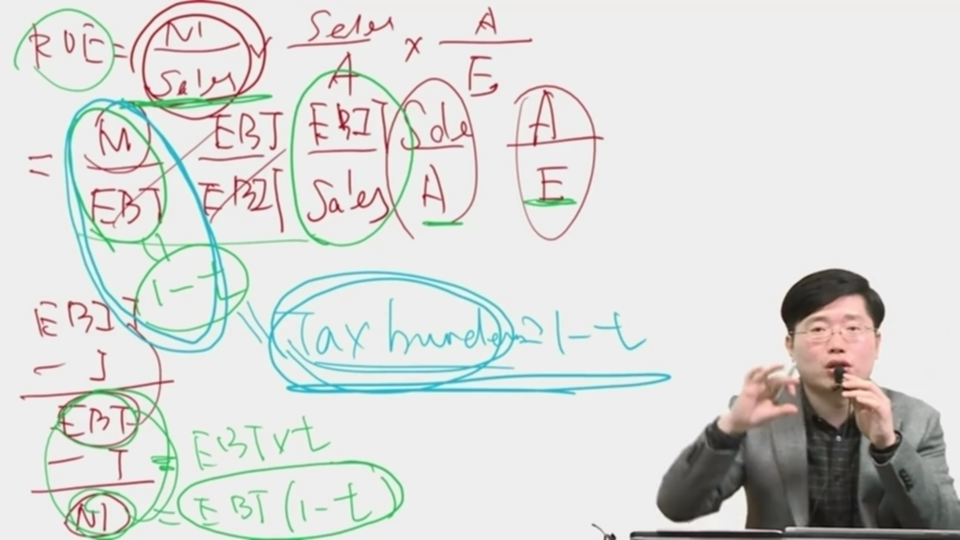 ROE = NI/Sales × Sales/A × A/E
= NI/EBT EBT/EBIT EBIT/Sales Sale/A A/E
1-t
Tax burden = 1-t
EBIT
- I
EBT
- T = EBT×t
NI = EBT(1-t)